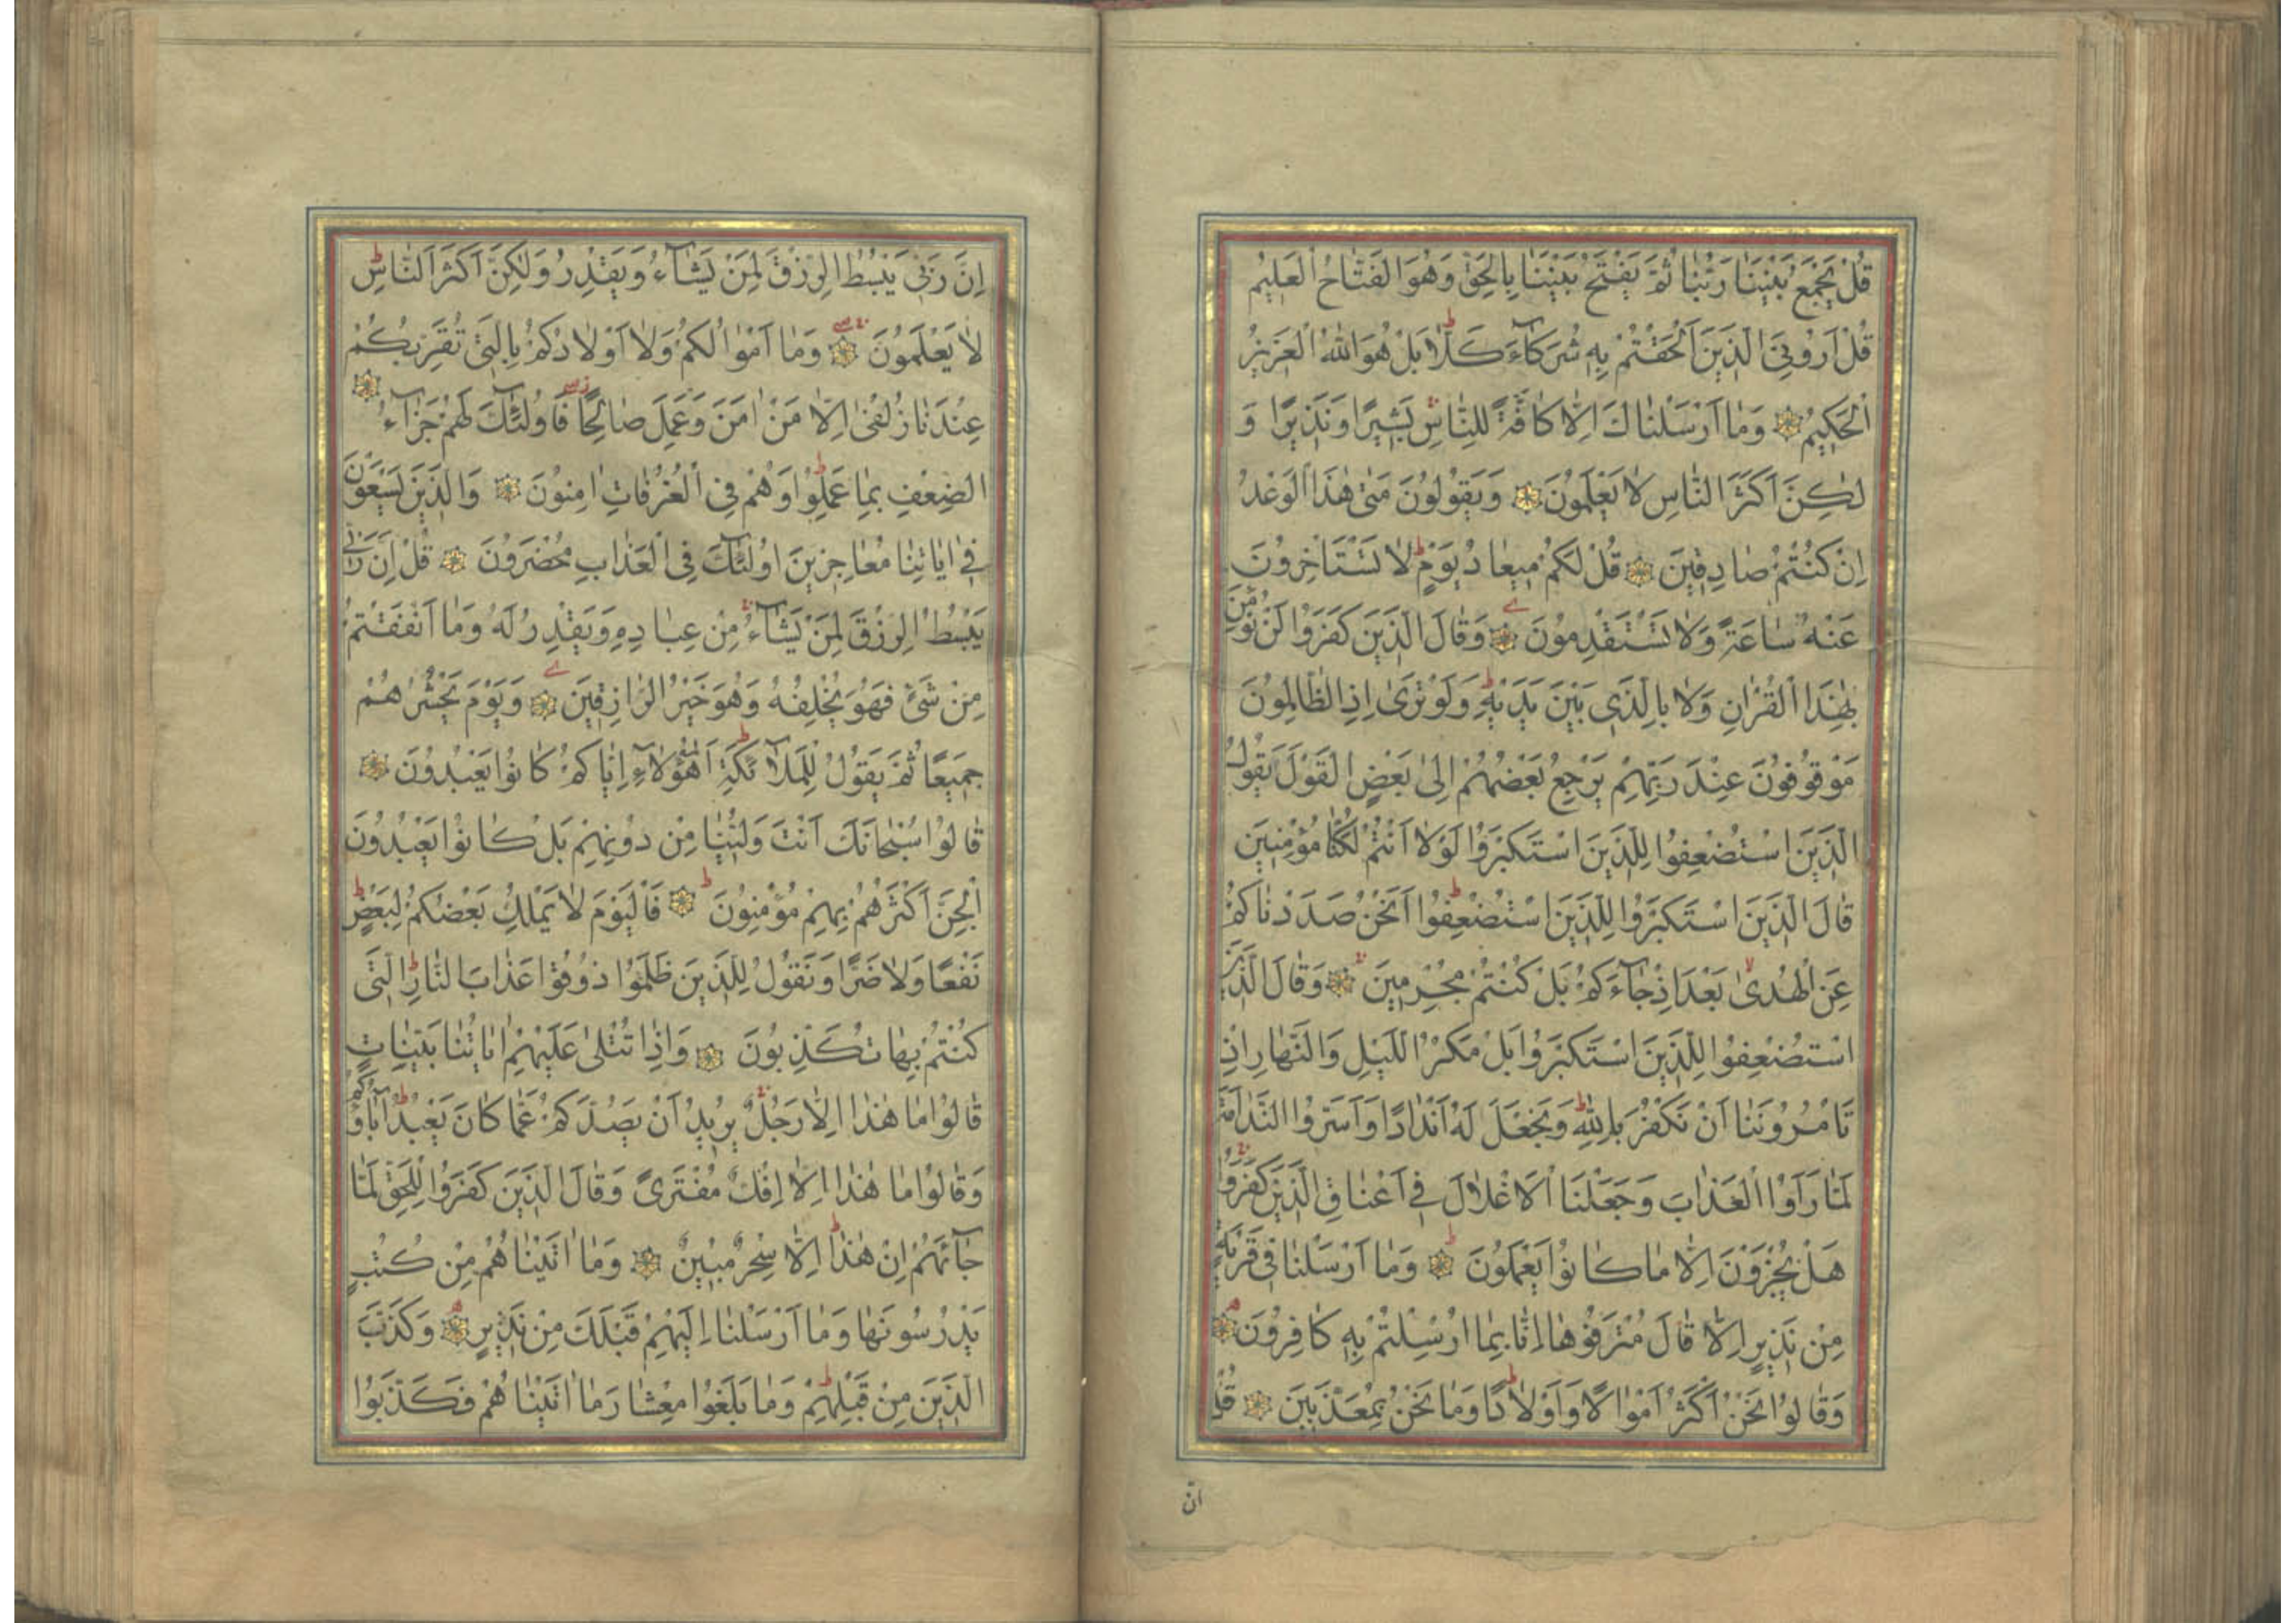 قُلْ يَجْمَعُ بَيْنَنَا رَبُّنَا ثُمَّ يَفْتَحُ بَيْنَنَا بِالْحَقِّ وَهُوَ الْفَتَّاحُ الْعَلِيمُ
قُلْ اَرُونِيَ الَّذِينَ اَلْحَقْتُمْ بِهِ شُرَكَآءَ كَلَّا بَلْ هُوَ اللّٰهُ الْعَزِيزُ
الْحَكِيمُ وَمَا اَرْسَلْنَاكَ اِلَّا كَافَّةً لِلنَّاسِ بَشِيرًا وَنَذِيرًا وَ
لٰكِنَّ اَكْثَرَ النَّاسِ لَا يَعْلَمُونَ وَيَقُولُونَ مَتٰى هٰذَا الْوَعْدُ
اِنْ كُنْتُمْ صَادِقِينَ قُلْ لَكُمْ مِيعَادُ يَوْمٍ لَا تَسْتَاْخِرُونَ
عَنْهُ سَاعَةً وَلَا تَسْتَقْدِمُونَ وَقَالَ الَّذِينَ كَفَرُوا لَنْ نُؤْمِنَ
بِهٰذَا الْقُرْاٰنِ وَلَا بِالَّذِي بَيْنَ يَدَيْهِ وَلَوْ تَرٰى اِذِ الظَّالِمُونَ
مَوْقُوفُونَ عِنْدَ رَبِّهِمْ يَرْجِعُ بَعْضُهُمْ اِلٰى بَعْضٍ الْقَوْلَ يَقُولُ
الَّذِينَ اسْتُضْعِفُوا لِلَّذِينَ اسْتَكْبَرُوا لَوْلَا اَنْتُمْ لَكُنَّا مُؤْمِنِينَ
قَالَ الَّذِينَ اسْتَكْبَرُوا لِلَّذِينَ اسْتُضْعِفُوا اَنَحْنُ صَدَدْنَاكُمْ
عَنِ الْهُدٰى بَعْدَ اِذْ جَآءَكُمْ بَلْ كُنْتُمْ مُجْرِمِينَ وَقَالَ الَّذِينَ
اسْتُضْعِفُوا لِلَّذِينَ اسْتَكْبَرُوا بَلْ مَكْرُ اللَّيْلِ وَالنَّهَارِ اِذْ
تَاْمُرُونَنَا اَنْ نَكْفُرَ بِاللّٰهِ وَنَجْعَلَ لَهُ اَنْدَادًا وَاَسَرُّوا النَّدَامَةَ
لَمَّا رَاَوُا الْعَذَابَ وَجَعَلْنَا الْاَغْلَالَ فِي اَعْنَاقِ الَّذِينَ كَفَرُوا
هَلْ يُجْزَوْنَ اِلَّا مَا كَانُوا يَعْمَلُونَ وَمَا اَرْسَلْنَا فِي قَرْيَةٍ
مِنْ نَذِيرٍ اِلَّا قَالَ مُتْرَفُوهَا اِنَّا بِمَا اُرْسِلْتُمْ بِهِ كَافِرُونَ
وَقَالُوا نَحْنُ اَكْثَرُ اَمْوَالًا وَاَوْلَادًا وَمَا نَحْنُ بِمُعَذَّبِينَ قُلْ
انّ
اِنَّ رَبِّي يَبْسُطُ الرِّزْقَ لِمَنْ يَشَآءُ وَيَقْدِرُ وَلٰكِنَّ اَكْثَرَ النَّاسِ
لَا يَعْلَمُونَ وَمَا اَمْوَالُكُمْ وَلَا اَوْلَادُكُمْ بِالَّتِي تُقَرِّبُكُمْ
عِنْدَنَا زُلْفٰى اِلَّا مَنْ اٰمَنَ وَعَمِلَ صَالِحًا فَاُولٰئِكَ لَهُمْ جَزَآءُ
الضِّعْفِ بِمَا عَمِلُوا وَهُمْ فِي الْغُرُفَاتِ اٰمِنُونَ وَالَّذِينَ يَسْعَوْنَ
فِي اٰيَاتِنَا مُعَاجِزِينَ اُولٰئِكَ فِي الْعَذَابِ مُحْضَرُونَ قُلْ اِنَّ رَبِّي
يَبْسُطُ الرِّزْقَ لِمَنْ يَشَآءُ مِنْ عِبَادِهِ وَيَقْدِرُ لَهُ وَمَا اَنْفَقْتُمْ
مِنْ شَيْءٍ فَهُوَ يُخْلِفُهُ وَهُوَ خَيْرُ الرَّازِقِينَ وَيَوْمَ يَحْشُرُهُمْ
جَمِيعًا ثُمَّ يَقُولُ لِلْمَلَآئِكَةِ اَهٰؤُلَآءِ اِيَّاكُمْ كَانُوا يَعْبُدُونَ
قَالُوا سُبْحَانَكَ اَنْتَ وَلِيُّنَا مِنْ دُونِهِمْ بَلْ كَانُوا يَعْبُدُونَ
الْجِنَّ اَكْثَرُهُمْ بِهِمْ مُؤْمِنُونَ فَالْيَوْمَ لَا يَمْلِكُ بَعْضُكُمْ لِبَعْضٍ
نَفْعًا وَلَا ضَرًّا وَنَقُولُ لِلَّذِينَ ظَلَمُوا ذُوقُوا عَذَابَ النَّارِ الَّتِي
كُنْتُمْ بِهَا تُكَذِّبُونَ وَاِذَا تُتْلٰى عَلَيْهِمْ اٰيَاتُنَا بَيِّنَاتٍ
قَالُوا مَا هٰذَا اِلَّا رَجُلٌ يُرِيدُ اَنْ يَصُدَّكُمْ عَمَّا كَانَ يَعْبُدُ اٰبَاؤُكُمْ
وَقَالُوا مَا هٰذَا اِلَّا اِفْكٌ مُفْتَرًى وَقَالَ الَّذِينَ كَفَرُوا لِلْحَقِّ لَمَّا
جَآئَهُمْ اِنْ هٰذَا اِلَّا سِحْرٌ مُبِينٌ وَمَا اٰتَيْنَاهُمْ مِنْ كُتُبٍ
يَدْرُسُونَهَا وَمَا اَرْسَلْنَا اِلَيْهِمْ قَبْلَكَ مِنْ نَذِيرٍ وَكَذَّبَ
الَّذِينَ مِنْ قَبْلِهِمْ وَمَا بَلَغُوا مِعْشَارَ مَا اٰتَيْنَاهُمْ فَكَذَّبُوا